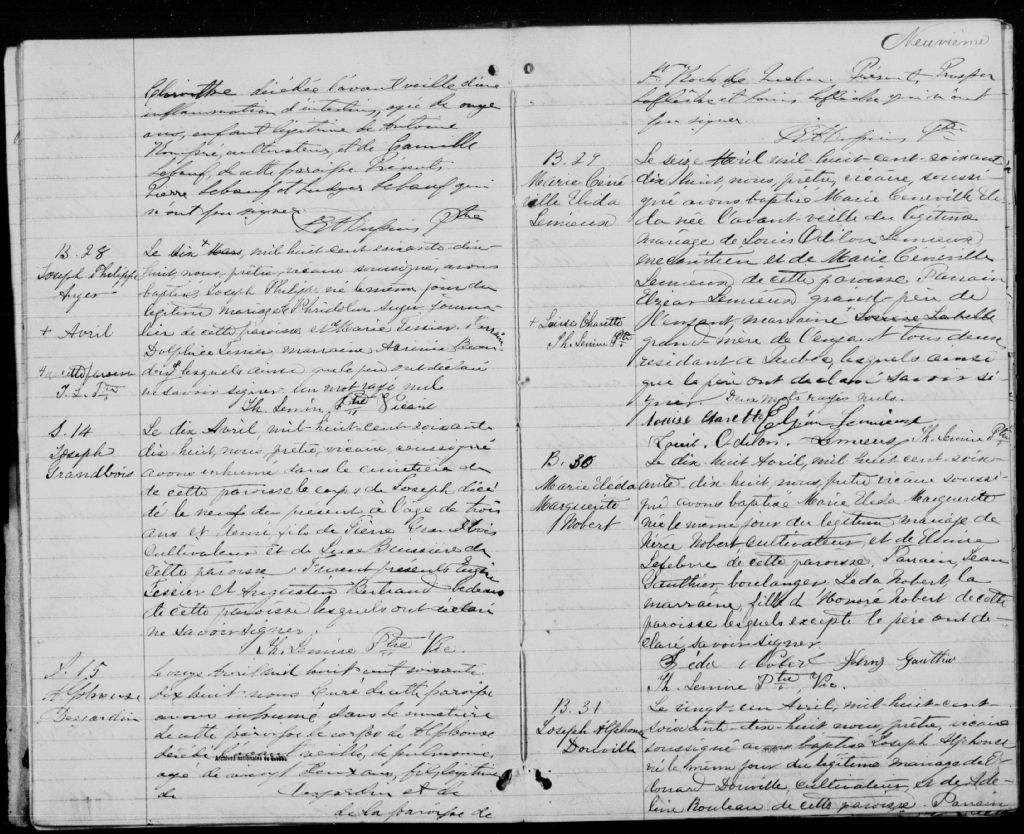 Neuvième
décédée l'avant veille d'une
inflammation d'intestins, agée de onze
ans, enfant légitime de Antoine
cultivateur, et de
Lebeuf, de cette paroisse. Présents
Pierre Lebeuf et Ludger Lebeuf qui
n'ont pu signer.
Ptre
B. 28
Joseph Philippe
Auger
Le dix + Mars, mil huit cent soixante dix
huit, nous, prêtre, vicaire soussigné, avons
baptisé Joseph Philippe né le même jour du
légitime mariage de Auger
de cette paroisse et de Marie Tessier. Parrain
+ Avril
Delphice Tessier, marraine
lesquels ainsi que le père ont déclaré
ne savoir signer. un mot rayé nul
Th. Lemire Ptre Vicaire
S. 14
Joseph
Grandbois
Le dix Avril, mil-huit-cent-soixante
dix-huit, nous, prêtre, vicaire, soussigné
avons inhumé dans le cimetière
de cette paroisse le corps de Joseph décé
dé le neuf du présent à l'age de trois
ans et demi fils de Pierre Grandbois
Cultivateur et de Luce Buissière de
cette paroisse. Furent présents Eugène
Tessier et Augustin Bertrand bedeau
de cette paroisse lesquels ont déclaré
ne savoir signer.
Th. Lemire Ptre Vic.
S. 15
Alphonse
Desjardin
Le onze Avril mil huit cent soixante
dix huit nous Curé de cette paroisse
avons inhumé dans le cimetière
de cette paroisse le corps de Alphonse
décédé l'avant veille, de pulmonie,
agé de deux ans, fils légitime
de Desjardin et de
de la paroisse de
Archives nationales du Québec
St Roch de Québec. Présents, Prosper
Laflèche et Louis Laflèche qui n'ont
pu signer
Ptre
B. 29
Marie Céné
ville Uleda
Lemieux
Le seize Avril mil huit-cent-soixante
dix-huit, nous, prêtre, vicaire, soussi
gné avons baptisé Marie Céneville Ule
da née l'avant veille du légitime
mariage de Louis Odilon Lemieux,
mecanicien et de Marie Céneville
Lemieux de cette paroisse. Parrain
Elzear Lemieux grand-père de
+ Louise Charette
Th. Lemire Ptre
l'enfant, marraine
grand-mère de l'enfant tous deux
résidant à Québec, lesquels ainsi
que le père ont déclaré savoir si-
gner. Deux mots rayés nuls.
Louise Charette Elzéar Lemieux
Louis Odilon Lemieux Th. Lemire Ptre
B. 30
Marie Uleda
Marguerite
Nobert
Le dix huit Avril, mil huit cent soix-
ante dix-huit, nous, prêtre vicaire soussi
gné avons baptisé Marie Uleda Marguerite
née le même jour du légitime mariage de
Nérée Nobert, cultivateur, et de Elmire
Lefebvre de cette paroisse. Parrain, Jean
Gauthier, boulanger. Léda Nobert, la
marraine, fille d'Honoré Nobert de cette
paroisse lesquels excepté le père ont dé-
claré savoir signer
Léda Nobert Johny Gauthier
Th. Lemire Ptre, Vic.
B. 31
Joseph Alphonse
Douville
Le vingt-un Avril, mil-huit-cent
soixante-dix-huit nous, prêtre, vicaire
soussigné avons baptisé Joseph Alphonse
né le même jour du légitime mariage de Ed-
ouard Douville, cultivateur, et de Adé-
line Rouleau de cette paroisse. Parrain